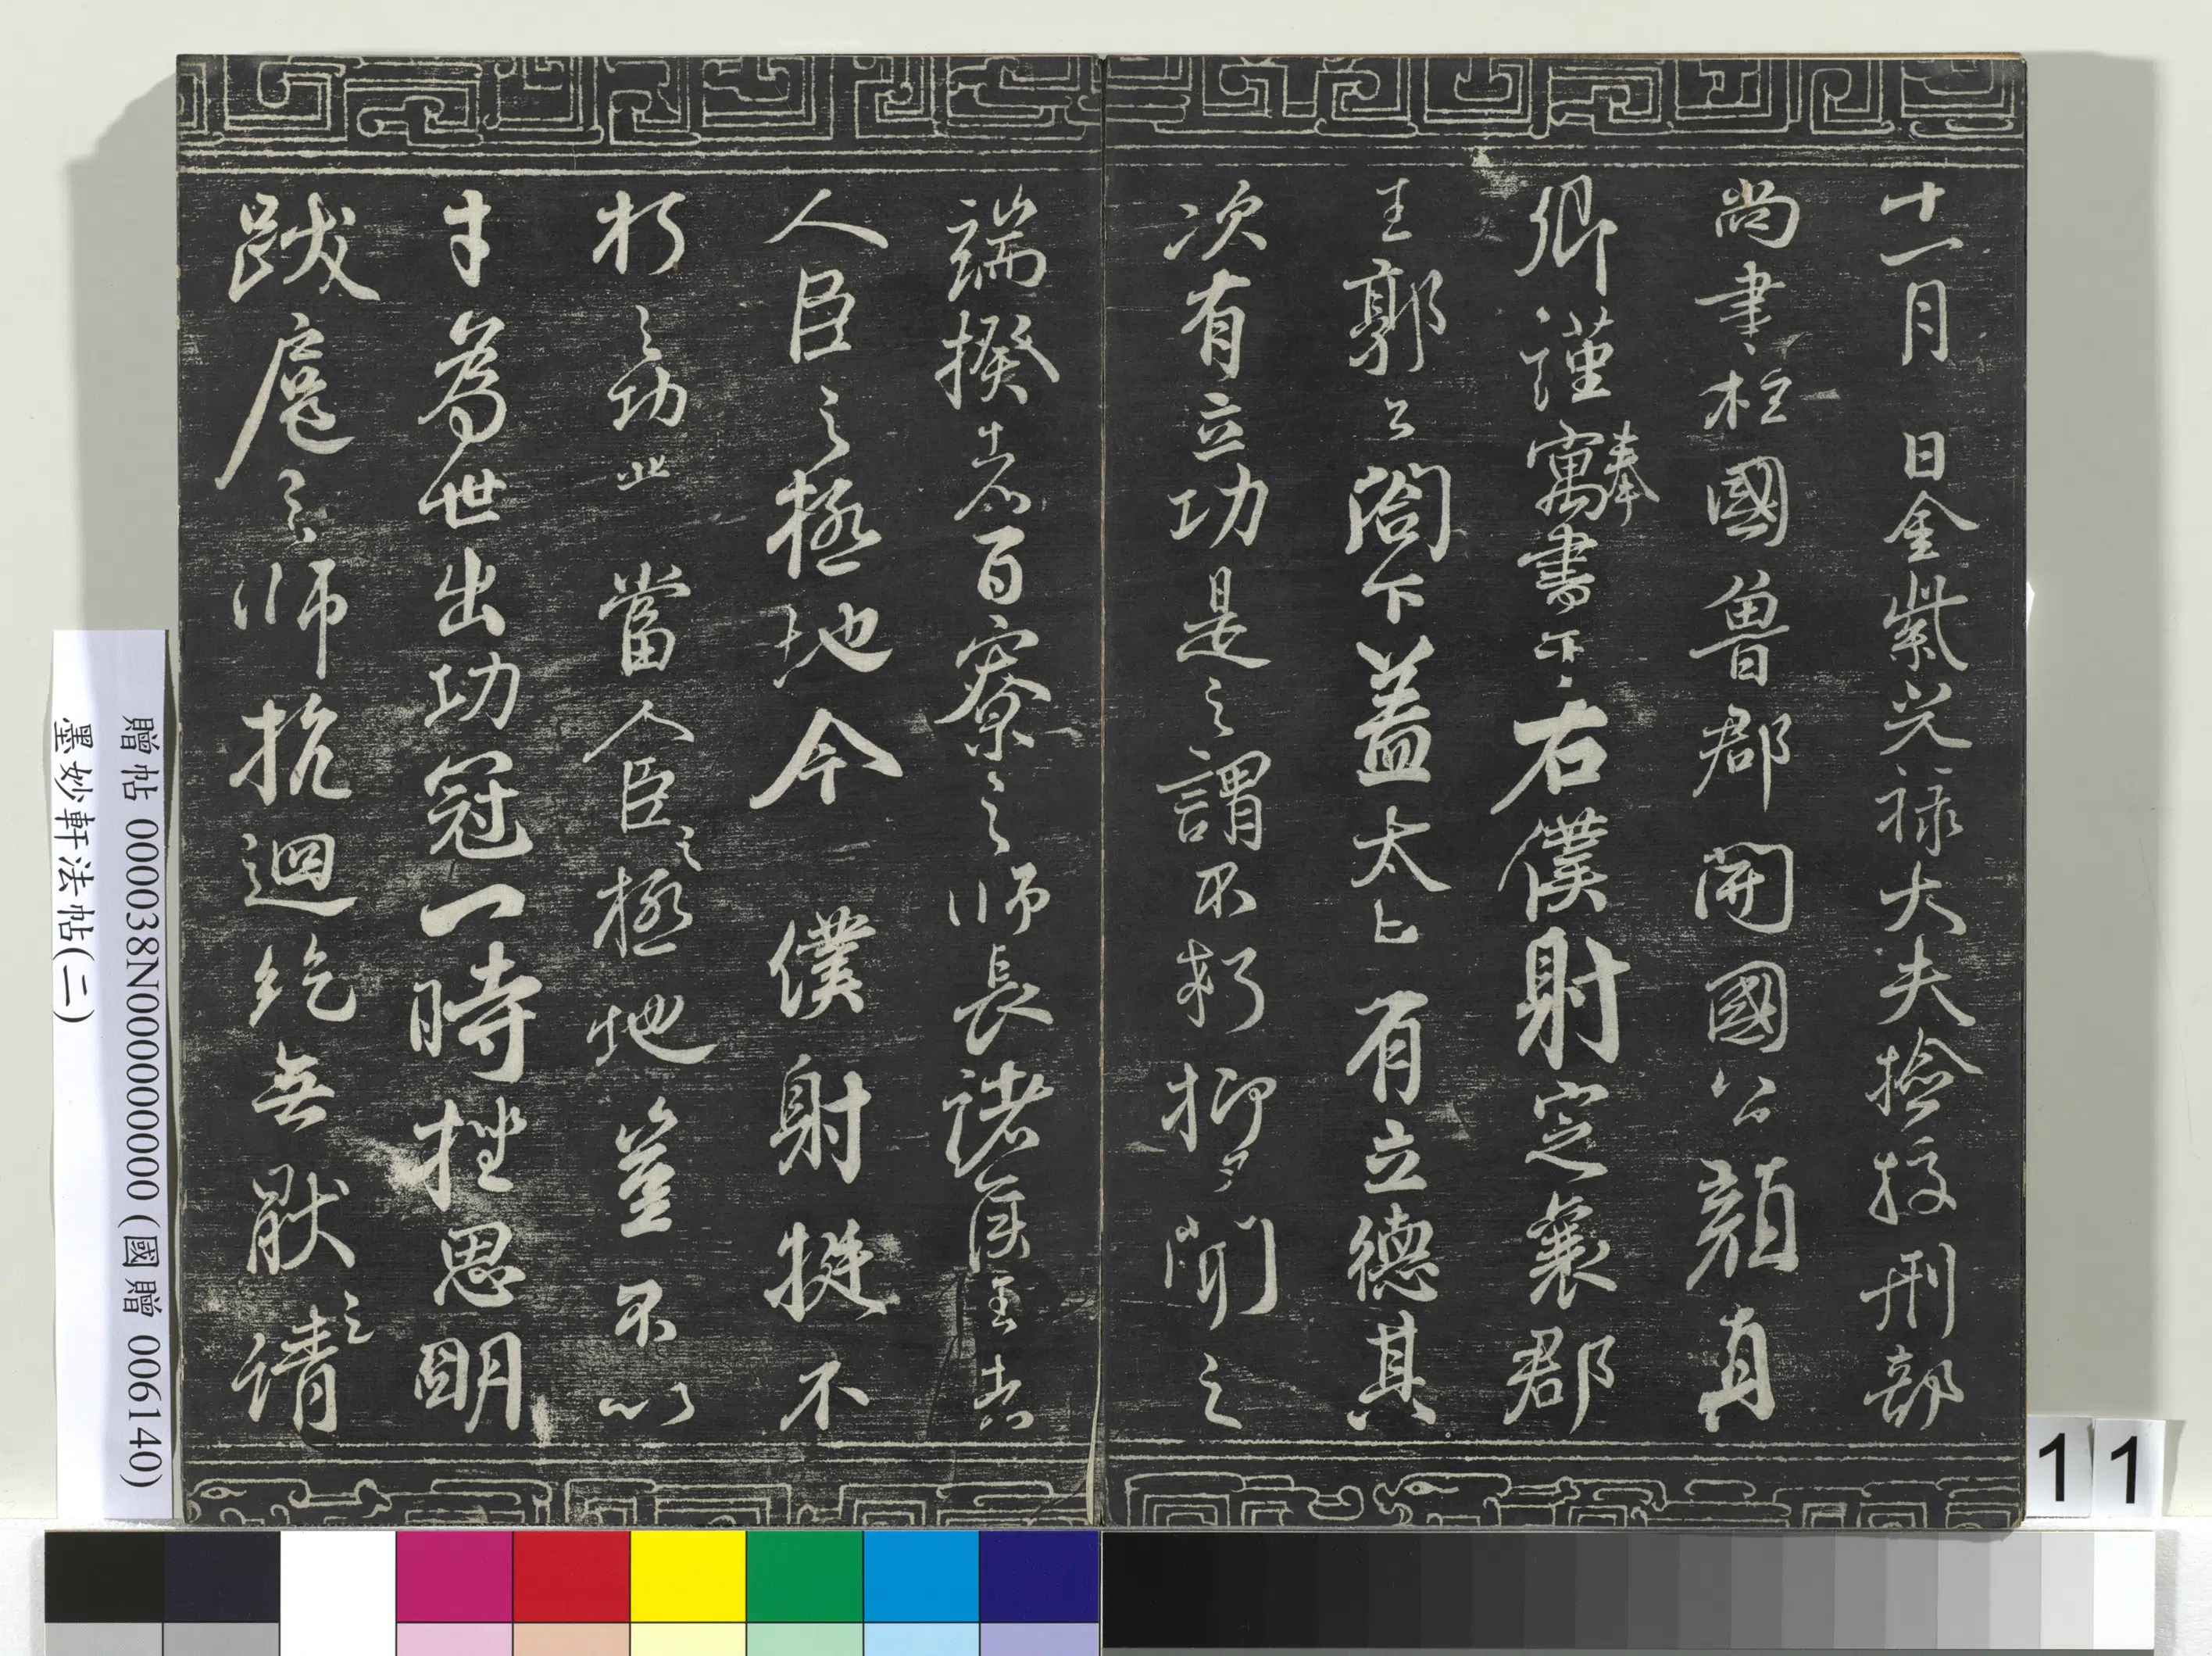 十一月 日金紫光祿大夫檢校刑部
尚書上柱國魯郡開國公顏真
卿謹寓奉書于右僕射定襄郡
王郭公閤下蓋太上有立德其
次有立功是之謂不朽抑又聞之
端揆者百寮之師長諸侯王者
人臣之極地今僕射挺不
朽之功業當人臣之極地豈不以
才為世出功冠一時挫思明
跋扈之師抗迴紇無厭之請
贈帖 000038N000000000 (國贈 006140)
墨妙軒法帖(二)
11